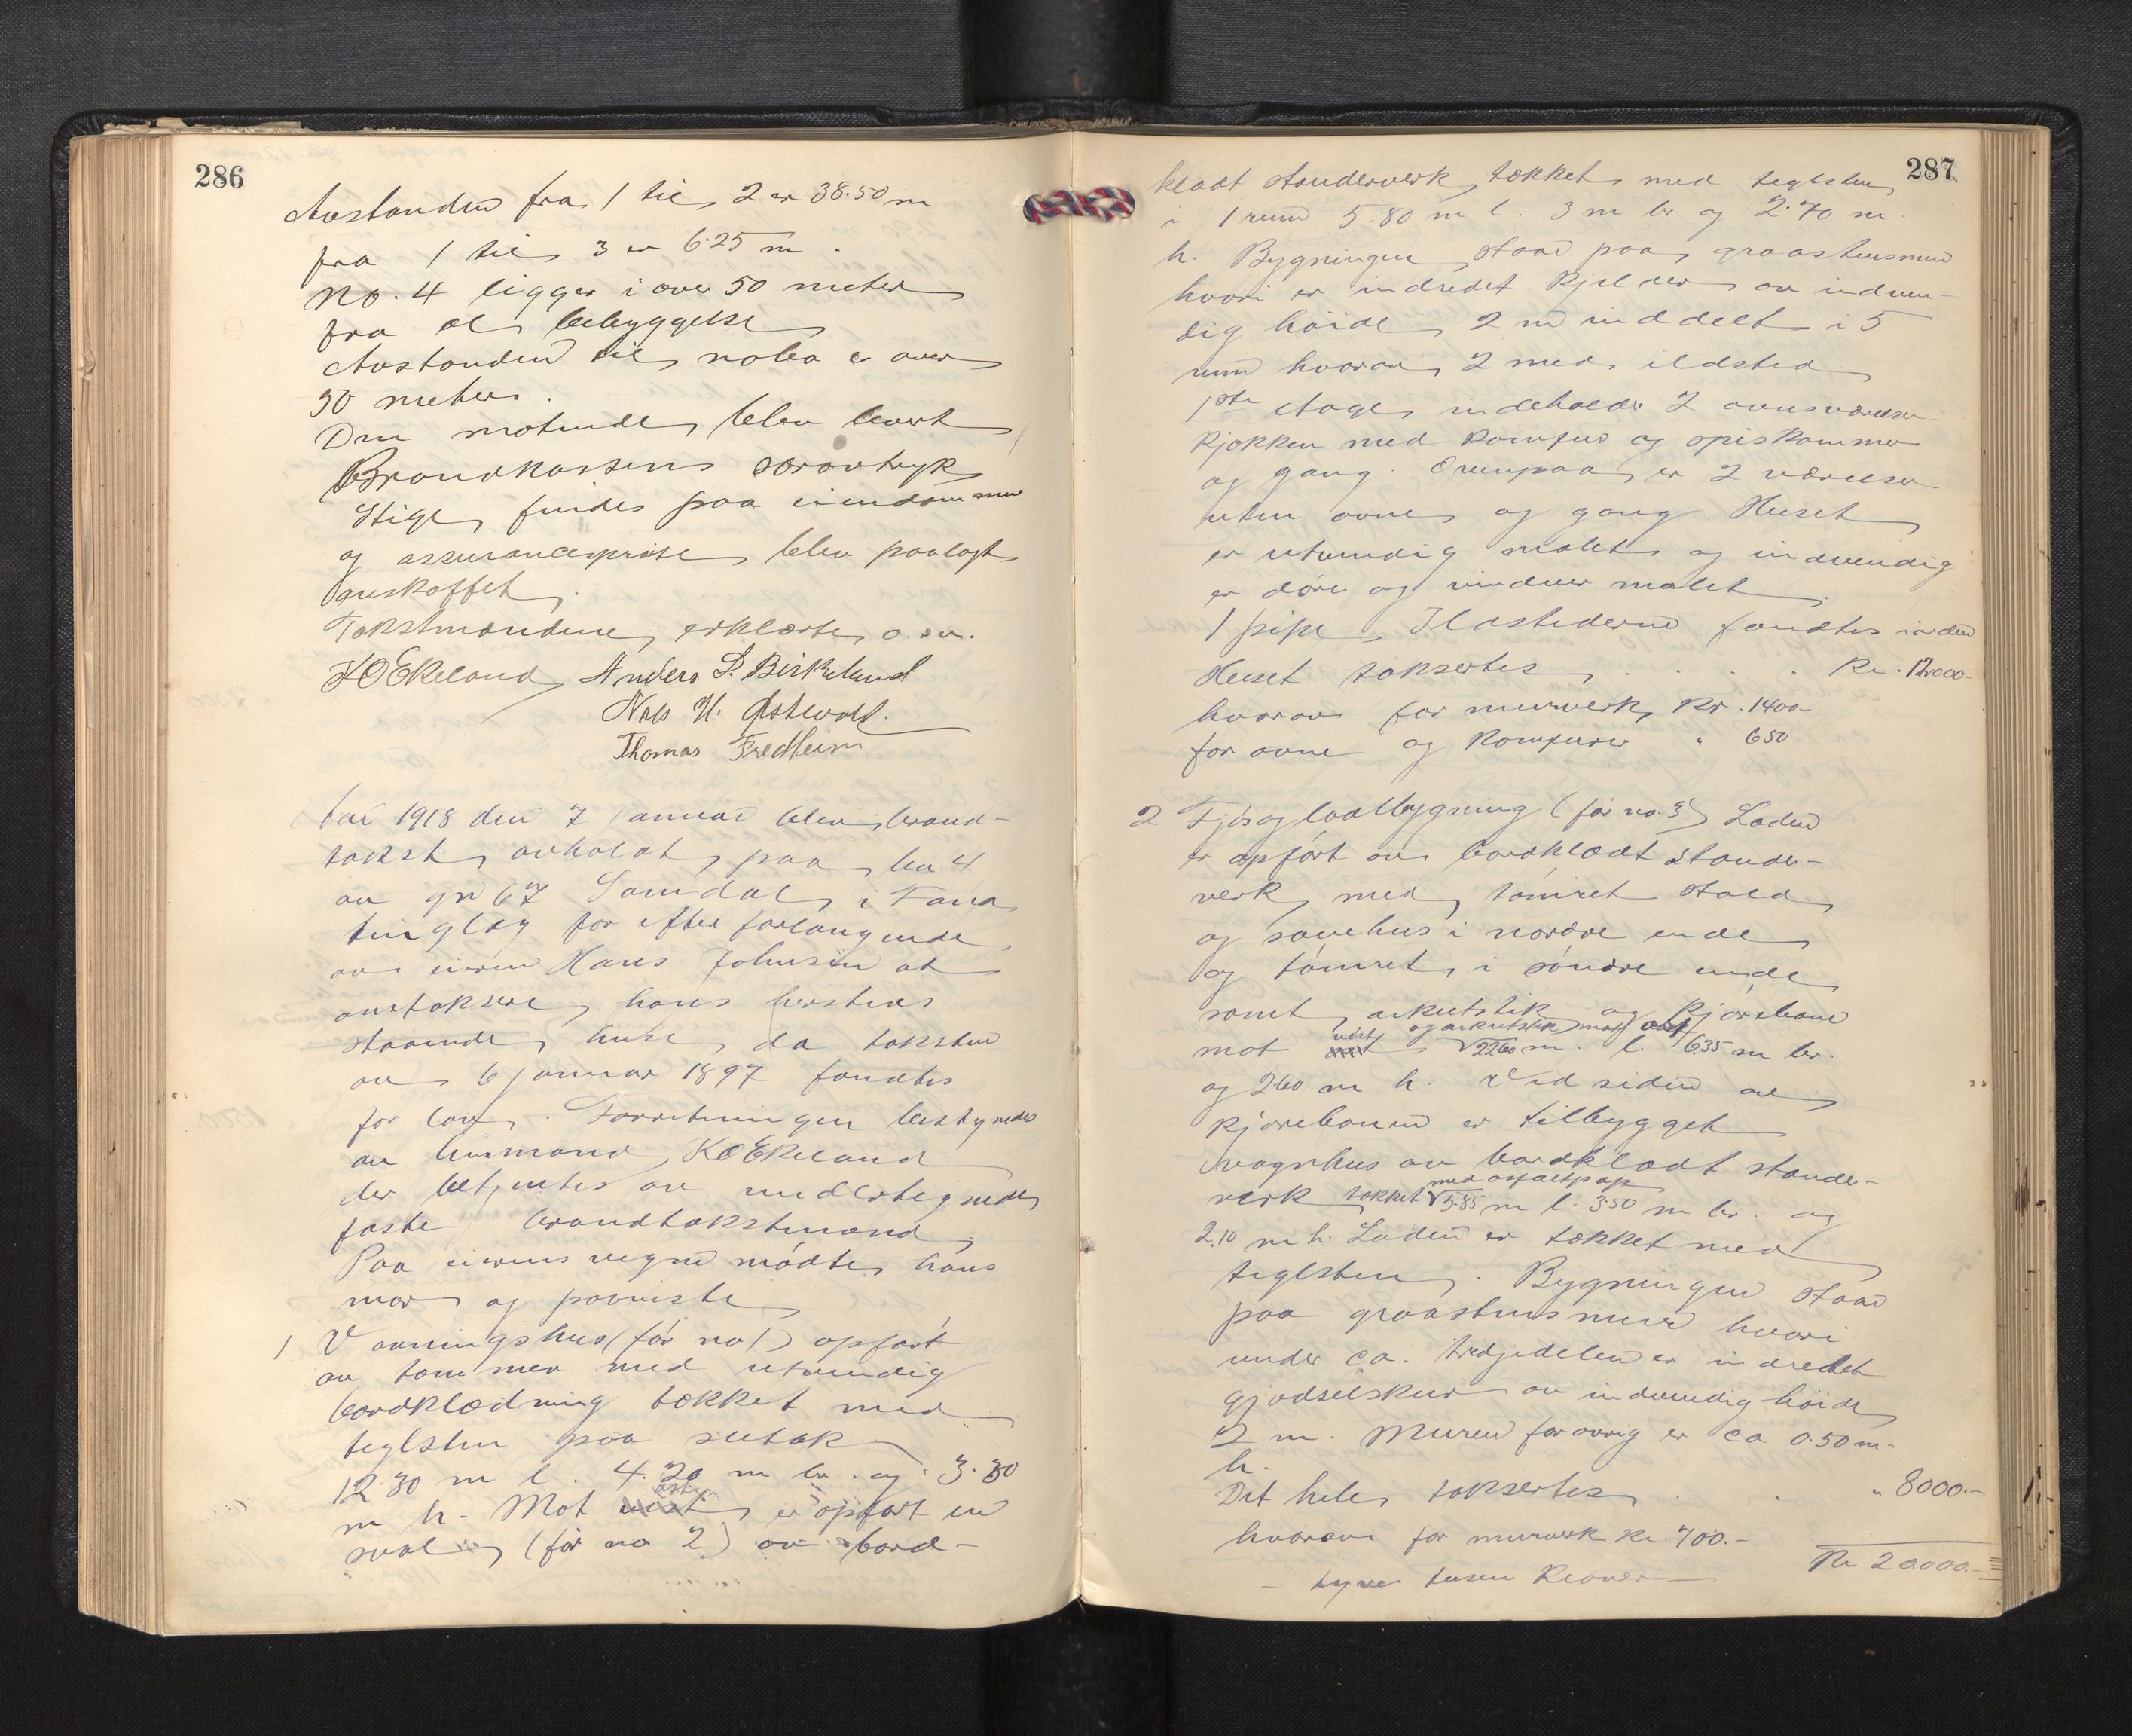 286
Avstanden fra 1 til 2 er 38.50 m
fra 1 til 3 er 6.25 m.
No. 4 ligger i over 50 meter
fra al bebyggelse
Avstanden til nabo er over
50 meter.
Den møtende blev levert
Brandkassens særavtryk
Stige findes paa eiendommen
og assurancesprøite blev paalagt
anskaffet.
Takstmændene erklærte o.s.v.
K O Ekeland Anders S. Birkeland
Nils H. Østevold.
Thomas Fredheim
Aar 1918 den 7 januar blev brand-
takst avholdt paa bn 4
av gn 67 Samdal i Fana
tinglag for efter forlangende
av eieren Hans Johnsen at
omtaksere hans herstens
staaende huse, da taksten
av 6 januar 1897 fandtes
for lav. Forretningen bestyredes
av lensmand K O Ekeland
der betjentes av undertegnede
faste brandtakstmænd
Paa eierens vegne mødte hans
mor og paaviste
1 Vaaningshus (før no 1) opført
av tømmer med utvendig
bordklædning tækket med
teglsten paa sutak
12.30 m l. 4.20 m br. og 3.30
m h. Mot øst er opført en
sval (før no 2) av bord-
287
klædt standerverk tækket med teglsten
i 1 rum 5.80 m l. 3 m br og 2.70 m
h. Bygningen staar paa graastensmur
hvori er indredet kjelder av indven-
dig høide 2 m inddelt i 5
rum hvorav 2 med ildsted
1ste etage indeholder 2 ovnsværelser
kjøkken med komfur og spiskammer
og gang. Ovenpaa er 2 værelser
uten ovne og gang. Huset
er utvendig malet og indvendig
er døre og vinduer malet.
1 pipe. Ildstederne fandtes i orden
Huset taksertes . . . . Kr. 12000-
hvorav for murverk Kr. 1400-
for ovne og komfurer " 650
2 Fjøs og ladebygning (før no. 3) Laden
er opført av bordklædt stander-
verk med tømret stald
og sauehus i nordre ende
og tømret i søndre ende
samt arkutstik og kjørebane
mot vest og arkutstik mot øst 22.60 m. l. 6.35 m br.
og 2.60 m h. Ved siden av
kjørebanen er tilbygget
vognhus av bordklædt stander-
verk tækket med asfaltpap 5.85 m l. 3.50 m br. og
2.10 m h. Laden er tækket med
teglsten. Bygningen staar
paa graastensmur hvori
under ca. tredjedelen er indredet
gjødselskur av indvendig høide
2 m. Muren forøvrig er ca 0.50 m-
h.
Det hele taksertes . . " 8000.-
hvorav for murverk kr. 700.-
Kr 20000.-
- tyve tusen Kroner -